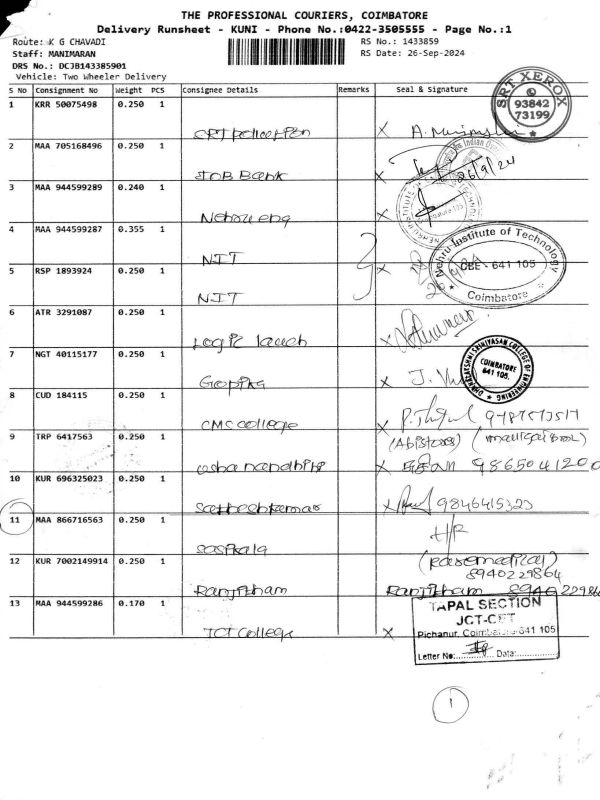 THE PROFESSIONAL COURIERS, COIMBATORE
Delivery Runsheet - KUNI - Phone No.:0422-3505555 - Page No.:1
Route: K G CHAVADI RS No.: 1433859
Staff: MANIMARAN RS Date: 26-Sep-2024
DRS No.: DCJB143385901
Vehicle: Two Wheeler Delivery
S No Consignment No Weight PCS Consignee Details Remarks Seal & Signature
SRT XEROX
93842
73199
1 KRR 50075498 0.250 1
X
2 MAA 705168496 0.250 1
IOB Bank X 26/9/24
3 MAA 944599289 0.240 1
Nehru eng X
4 MAA 944599287 0.355 1
NIT
Nehru Institute of Technology
CBE - 641 105
Coimbatore
5 RSP 1893924 0.250 1
NIT X
6 ATR 3291087 0.250 1
Logic X
7 NGT 40115177 0.250 1
Gopika X J.
DHANALAKSHMI SRINIVASAN COLLEGE OF ENGINEERING
COIMBATORE
641 105.
8 CUD 184115 0.250 1
CMS College
9 TRP 6417563 0.250 1
usha nandhini X
10 KUR 696325023 0.250 1
Satheshkumar X 9846415323
11 MAA 866716563 0.250 1
Sasikala H/R
12 KUR 7002149914 0.250 1
8940229864
Ranjitham Ranjitham 8940229864
13 MAA 944599286 0.170 1
JCT College X
TAPAL SECTION
JCT-CET
Pichanur, Coimbatore-641 105
Letter No: Date:
1